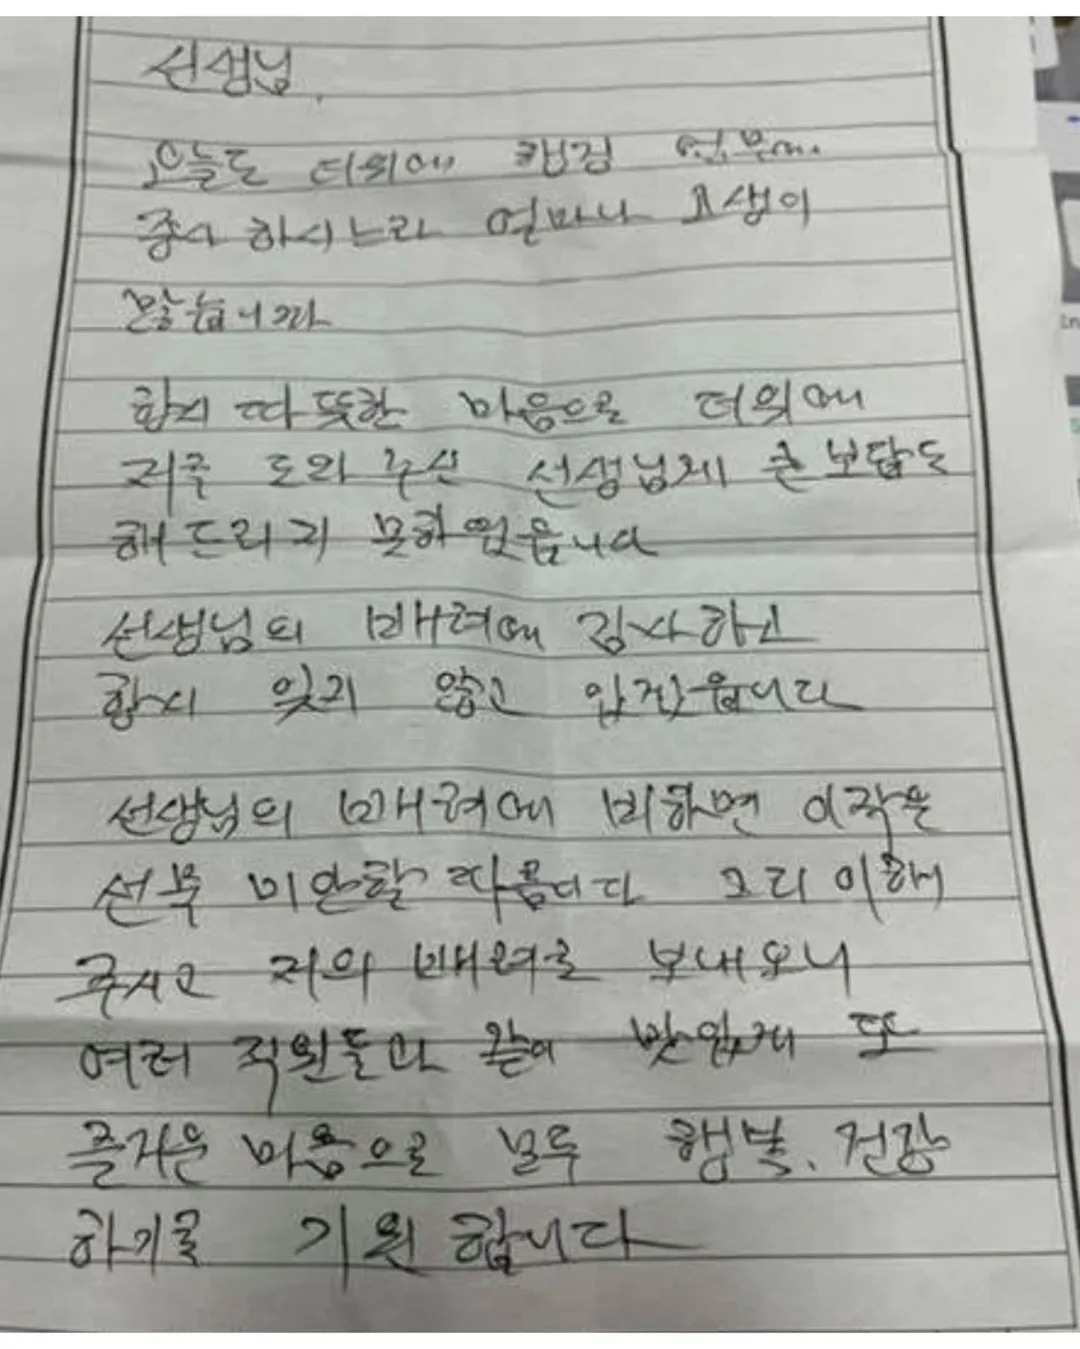 선생님,
오늘도 더위에 행정 업무에
종사 하시느라 얼마나 고생이
많습니까
항시 따뜻한 마음으로 더위에
저를 도와 주신 선생님께 큰 보답도
해드리지 못하였읍니다
선생님의 배려에 감사하고
항시 잊지 않고 있읍니다
선생님의 배려에 비하면 이 작은
선물 미안할 따름니다 그리 이해
주시고 저의 배려로 보내오니
여러 직원들과 같이 맛있게 또
즐거운 마음으로 모두 행복, 건강
하기를 기원 합니다